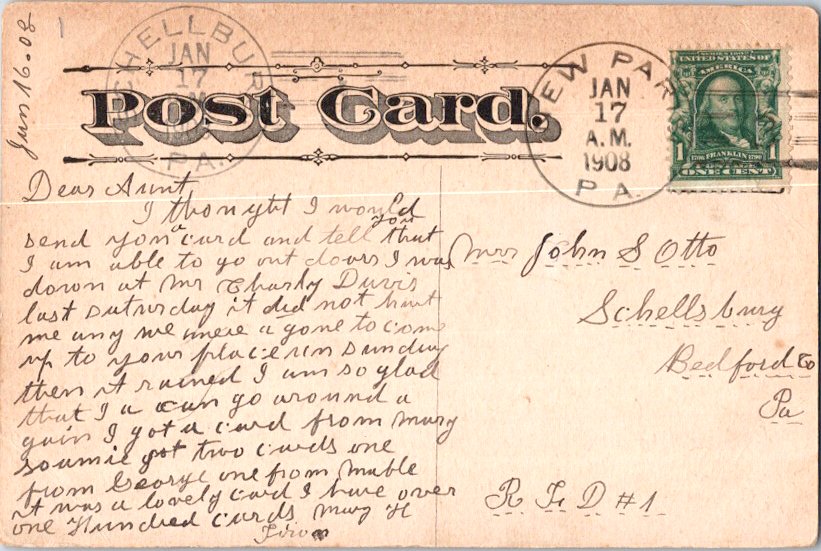 Jan 16-08
SHELLBUR
JAN
17
PA.
Post Card.
NEW PARIS
JAN
17
A.M.
1908
PA.
SERIES 1902
UNITED STATES OF
AMERICA
1 1706 FRANKLIN 1790 1
ONE CENT
Dear Aunt
I thonyht I would
send you a card and tell you that
I am able to go out doors I was
down at Mr Charly Davis
last saturday it did not hurt
me any we were a gone to come
up to your place un sunday
then it rained I am so glad
that I a can go around a
gain I got a card from Mary
got two cards one
from George one from Mable
it was a lovely card I have over
one Hundred cards Mary H
Mrs John S Otto
Schellsburg
Bedford Co
Pa
R F D #1.